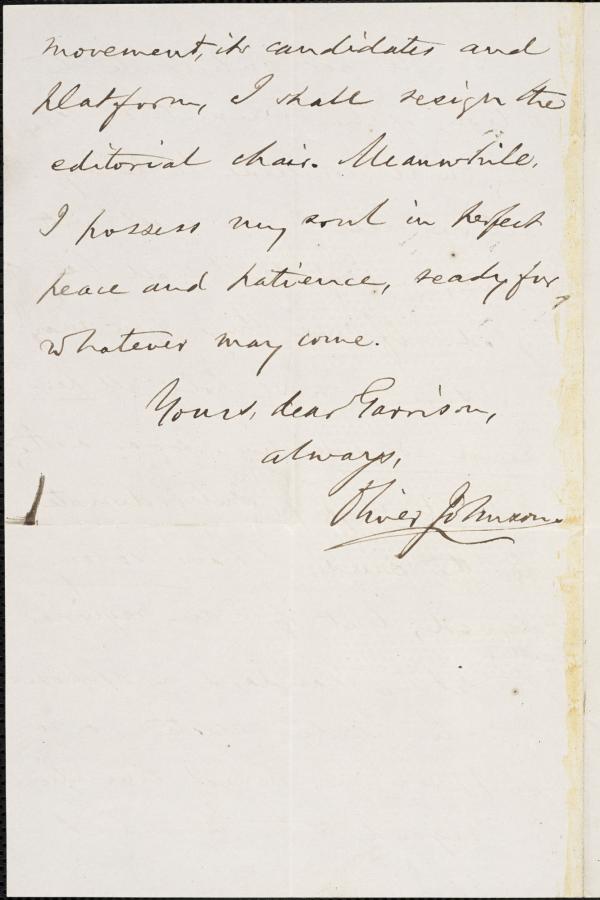 movement, its candidates and
platform, I shall resign the
editorial chair. Meanwhile,
I possess my soul in perfect
peace and patience, ready for
whatever may come.
Yours, dear Garrison,
always,
Oliver Johnson.